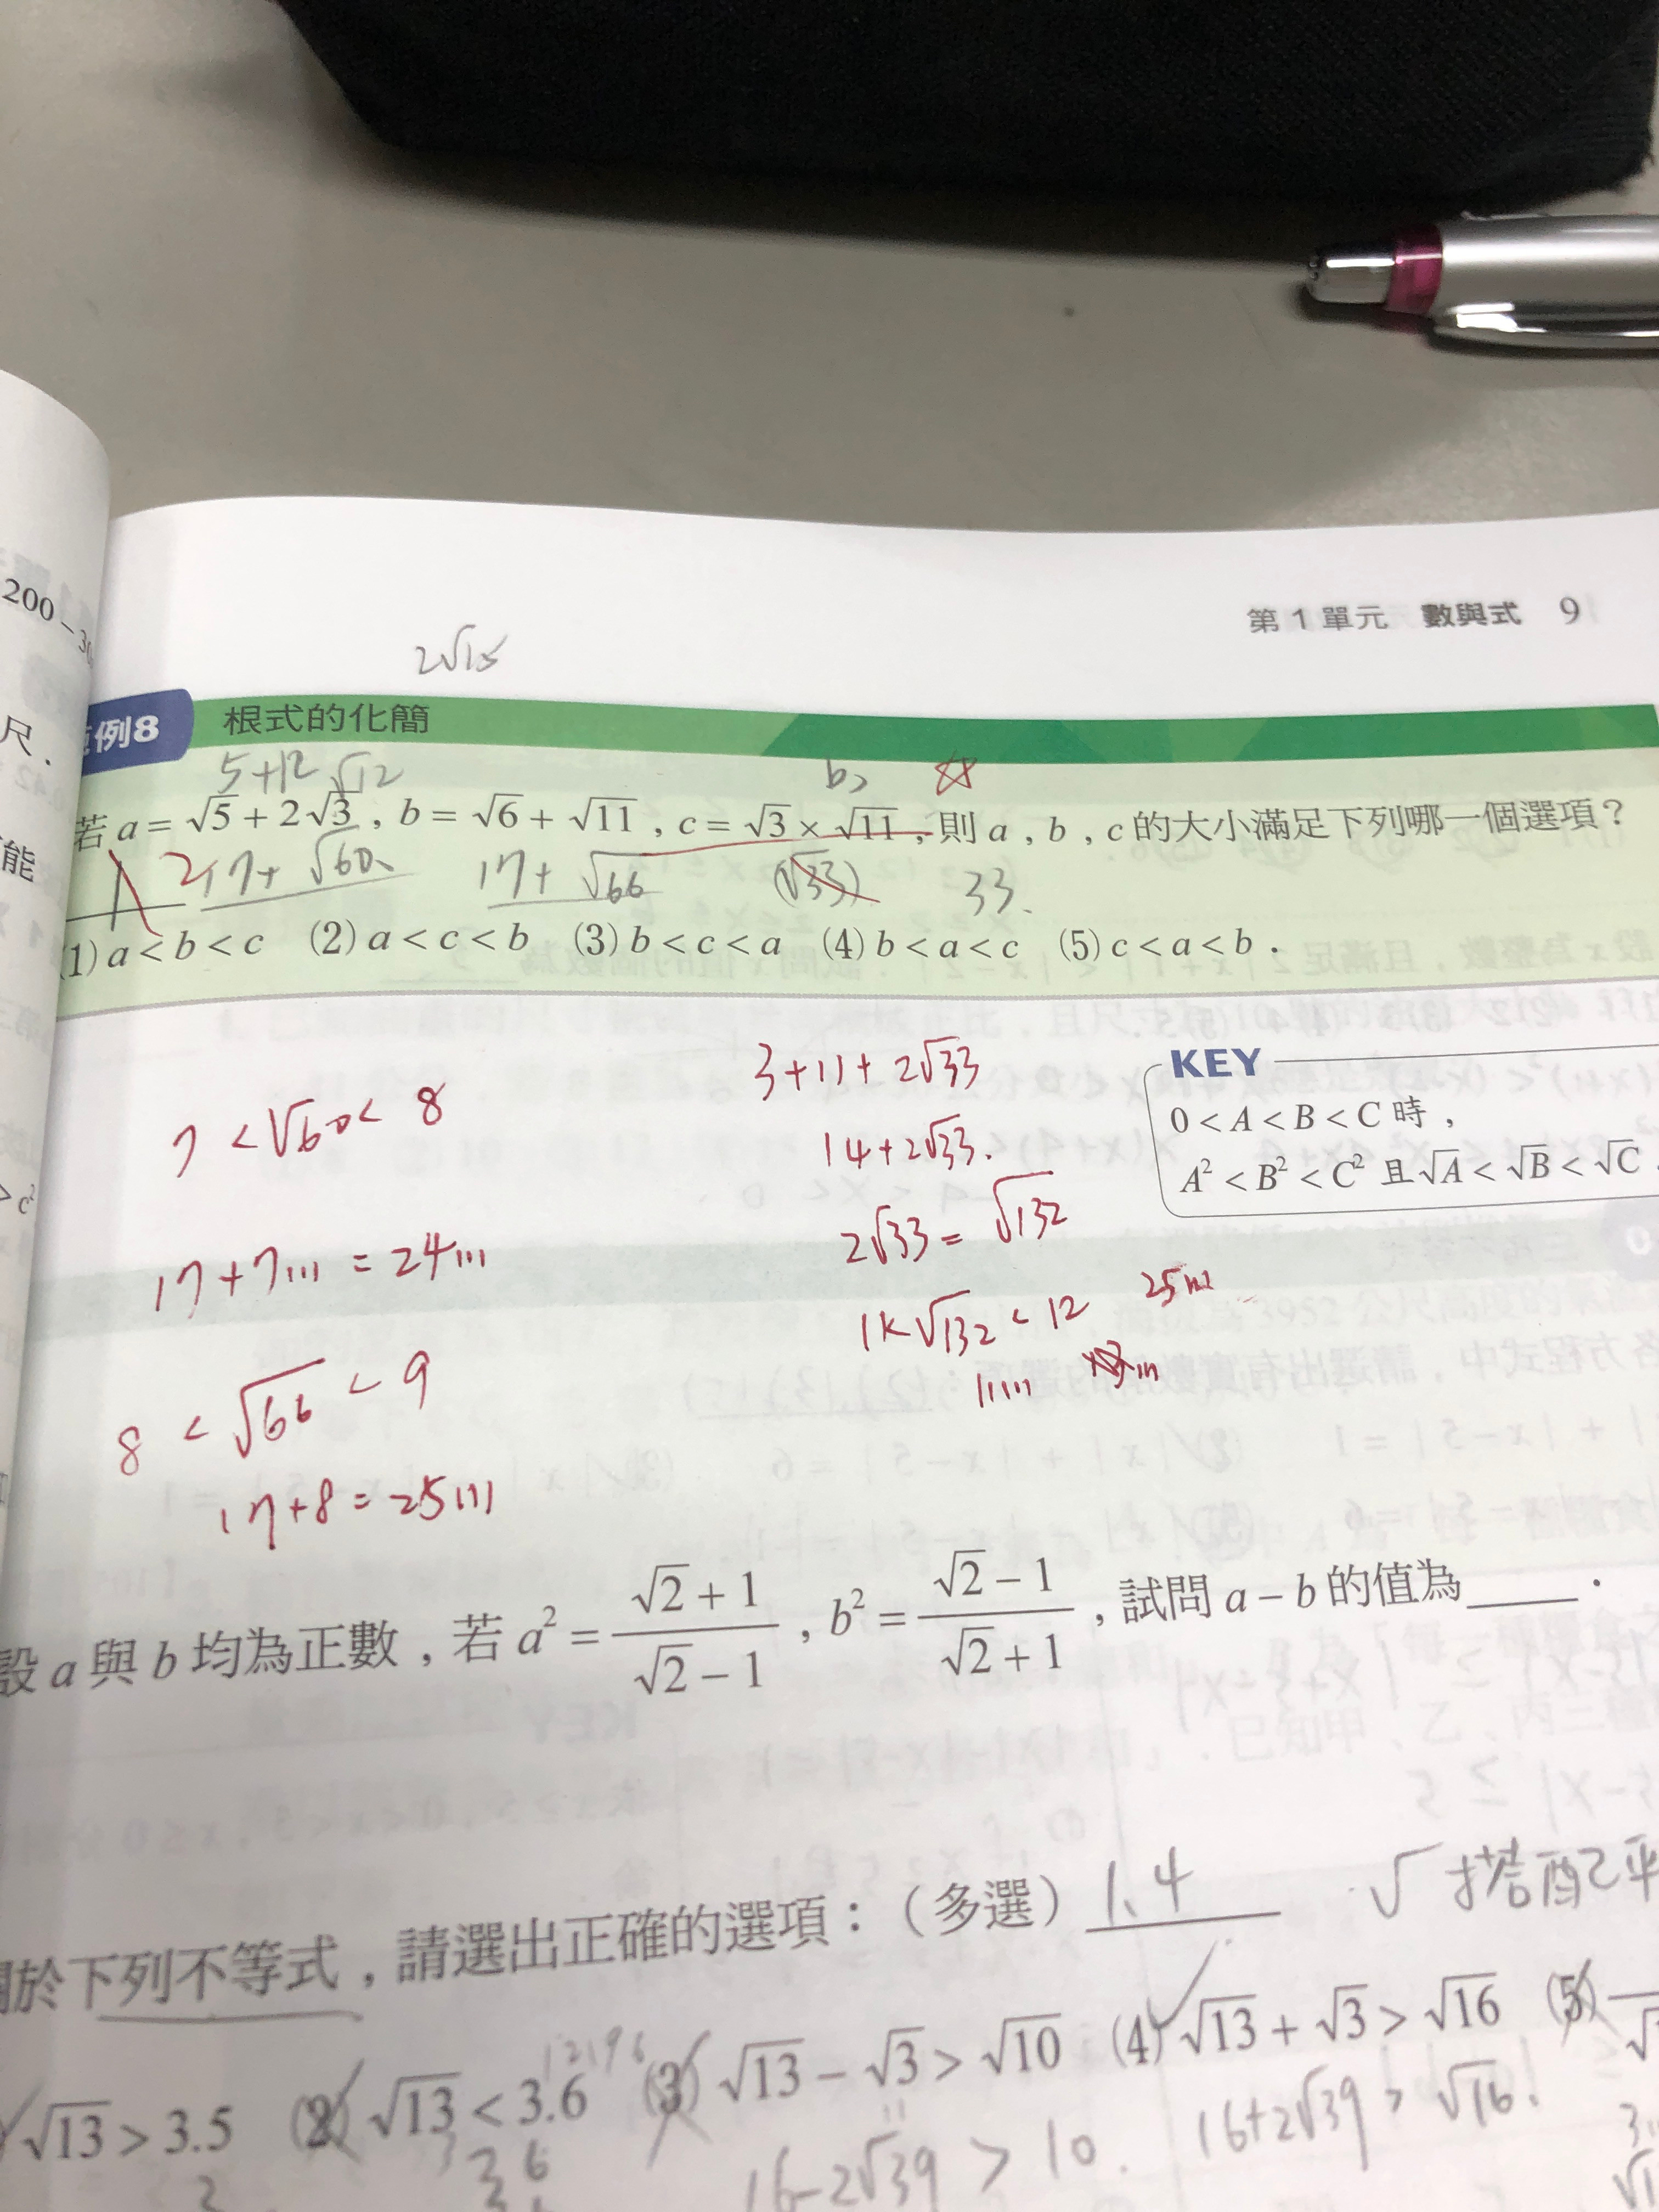 200 − 30
尺．
能
> c²
第 1 單元 數與式 9
2√15
例8 根式的化簡
5+12 √12
b>
若 a = √5 + 2√3 , b = √6 + √11 , c = √3 × √11 , 則 a , b , c 的大小滿足下列哪一個選項？
17+ √60 17+ √66 (√33) 33.
(1) a < b < c (2) a < c < b (3) b < c < a (4) b < a < c (5) c < a < b．
7 < √60 < 8
17+7... = 24...
8 < √66 < 9
17+8 = 25...
3+11+ 2√33
14+2√33.
2√33 = √132
11<√132 < 12 25...
11...
KEY
0 < A < B < C 時，
A² < B² < C² 且 √A < √B < √C．
設 a 與 b 均為正數，若 a² = (√2 + 1)/(√2 − 1) , b² = (√2 − 1)/(√2 + 1) , 試問 a − b 的值為____．
√搭配平
關於下列不等式，請選出正確的選項：（多選）1、4
√13 > 3.5 (2) √13 < 3.6 (3) √13 − √3 > √10 (4) √13 + √3 > √16 (5)
16−2√39 > 10.
16+2√39 > √16.